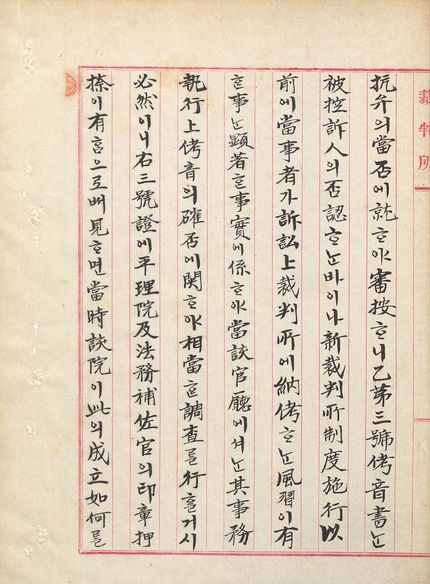 裁判所
抗弁의當否에就ᄒᆞ야審按ᄒᆞ니乙第三號侤音書ᄂᆞᆫ
被控訴人의否認ᄒᆞᄂᆞᆫ바이나新裁判所制度施行以
前에當事者가訴訟上裁判所에納侤ᄒᆞᄂᆞᆫ風習이有
ᄒᆞᆫ事ᄂᆞᆫ顯著ᄒᆞᆫ事實에係ᄒᆞ야當該官廳에셔ᄂᆞᆫ其事務
執行上侤音의確否에關ᄒᆞ야相當ᄒᆞᆫ調査ᄅᆞᆯ行ᄒᆞᆯ거시
必然이니右三號證에平理院及法務補佐官의印章押
捺이有ᄒᆞᆷ으로ᄡᅥ見ᄒᆞ면當時該院이此의成立如何ᄅᆞᆯ